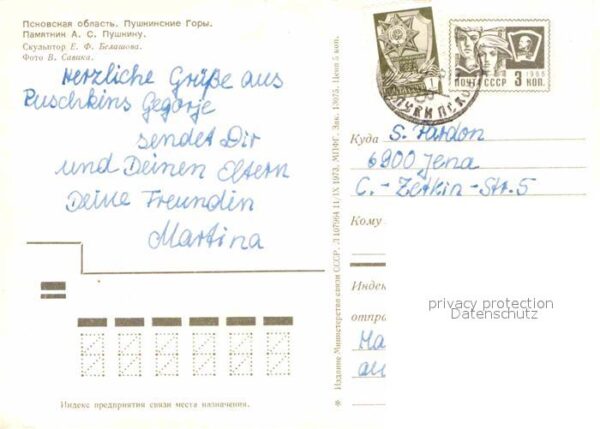 Псковская область. Пушкинские Горы.
Памятник А. С. Пушкину.
Скульптор Е. Ф. Белашова.
Фото В. Савика.
Herzliche Grüße aus
Puschkins Gegorje
sendet Dir
und Deinen Eltern
Deine Freundin
Martina
Издание Министерства связи СССР. Л 107964 11/IX 1973. МПФГ. Зак. 13075. Цена 5 коп.
1966
ПОЧТА СССР 3 КОП.
Куда S. Pardon
6900 Jena
C.-Zetkin-Str. 5
Кому
Индек
privacy protection
Datenschutz
отпра
Ma
au
Индекс предприятия связи места назначения.